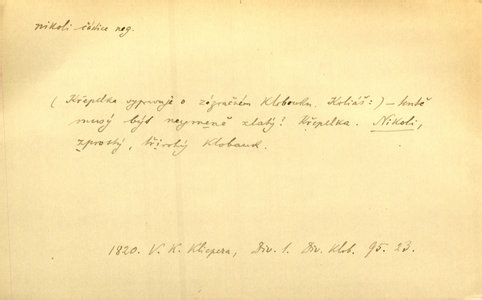 nikoli částice neg.
( Křepelka vypravuje o zázračném Klobouku. Koliáš:) – tentě
musý býd neyméně zlatý! Křepelka. Nikoli,
zprostý, třírohý Klobauk.
1820. V. K. Klicpera, Div. 1. Div. Klob. 95. 23.